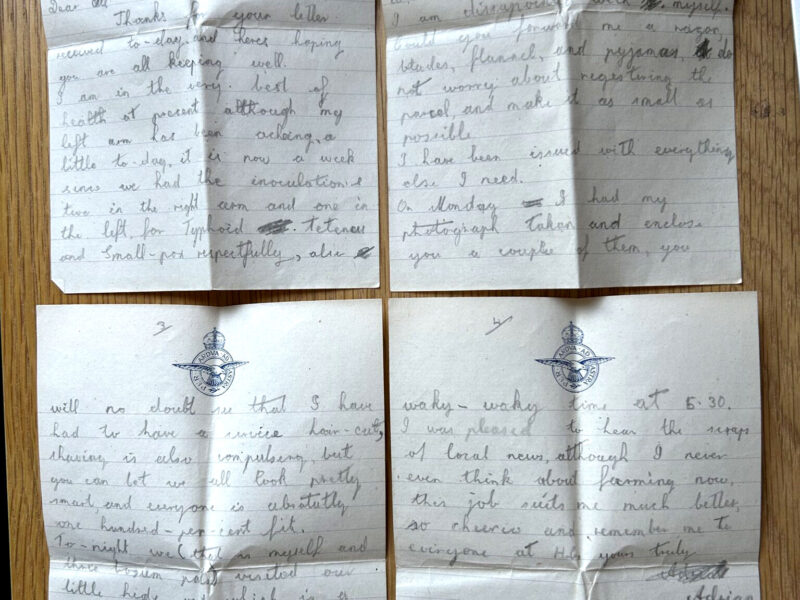 Dear All
Thanks for your letter
received to-day, and heres hoping
you are all keeping well.
I am in the very best of
health at present although my
left arm has been acheing, a
little to-day, it is now a week
since we had the inoculations
two in the right arm and one in
the left, for Typhoid tetenus
and Small-pox respectfully, also
I am with myself.
Could you forward me a razor,
blades, flannel, and pyjamas, do
not worry about regestering the
parcel, and make it as small as
possible
I have been issued with everything
else I need.
On Monday I had my
photograph taken and enclose
you a couple of them, you
3
PER ARDVA AD ASTRA
will no doubt see that I have
had to have a service hair-cut,
shaving is also compulsing, but
you can bet we all look pretty
smart, and everyone is absolutly
one hundred-per-cent fit.
To-night we (that is myself and
three visited our
little which is a
4
PER ARDVA AD ASTRA
waky-waky time at 5.30.
I was pleased to hear the scraps
of local news, although I never
even think about farming now,
this job suits me much better,
so cheerio and remember me to
everyone at yours truly
Adrian